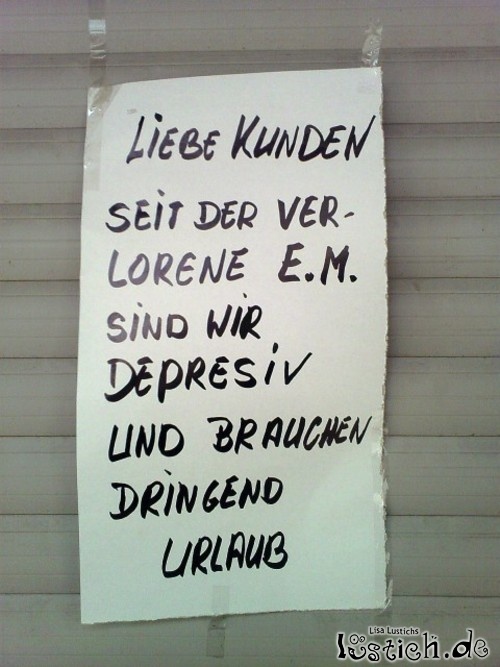 LIEBE KUNDEN
SEIT DER VER-
LORENE E.M.
SIND WIR
DEPRESIV
UND BRAUCHEN
DRINGEND
URLAUB
Lisa Lustichs
lustich.de